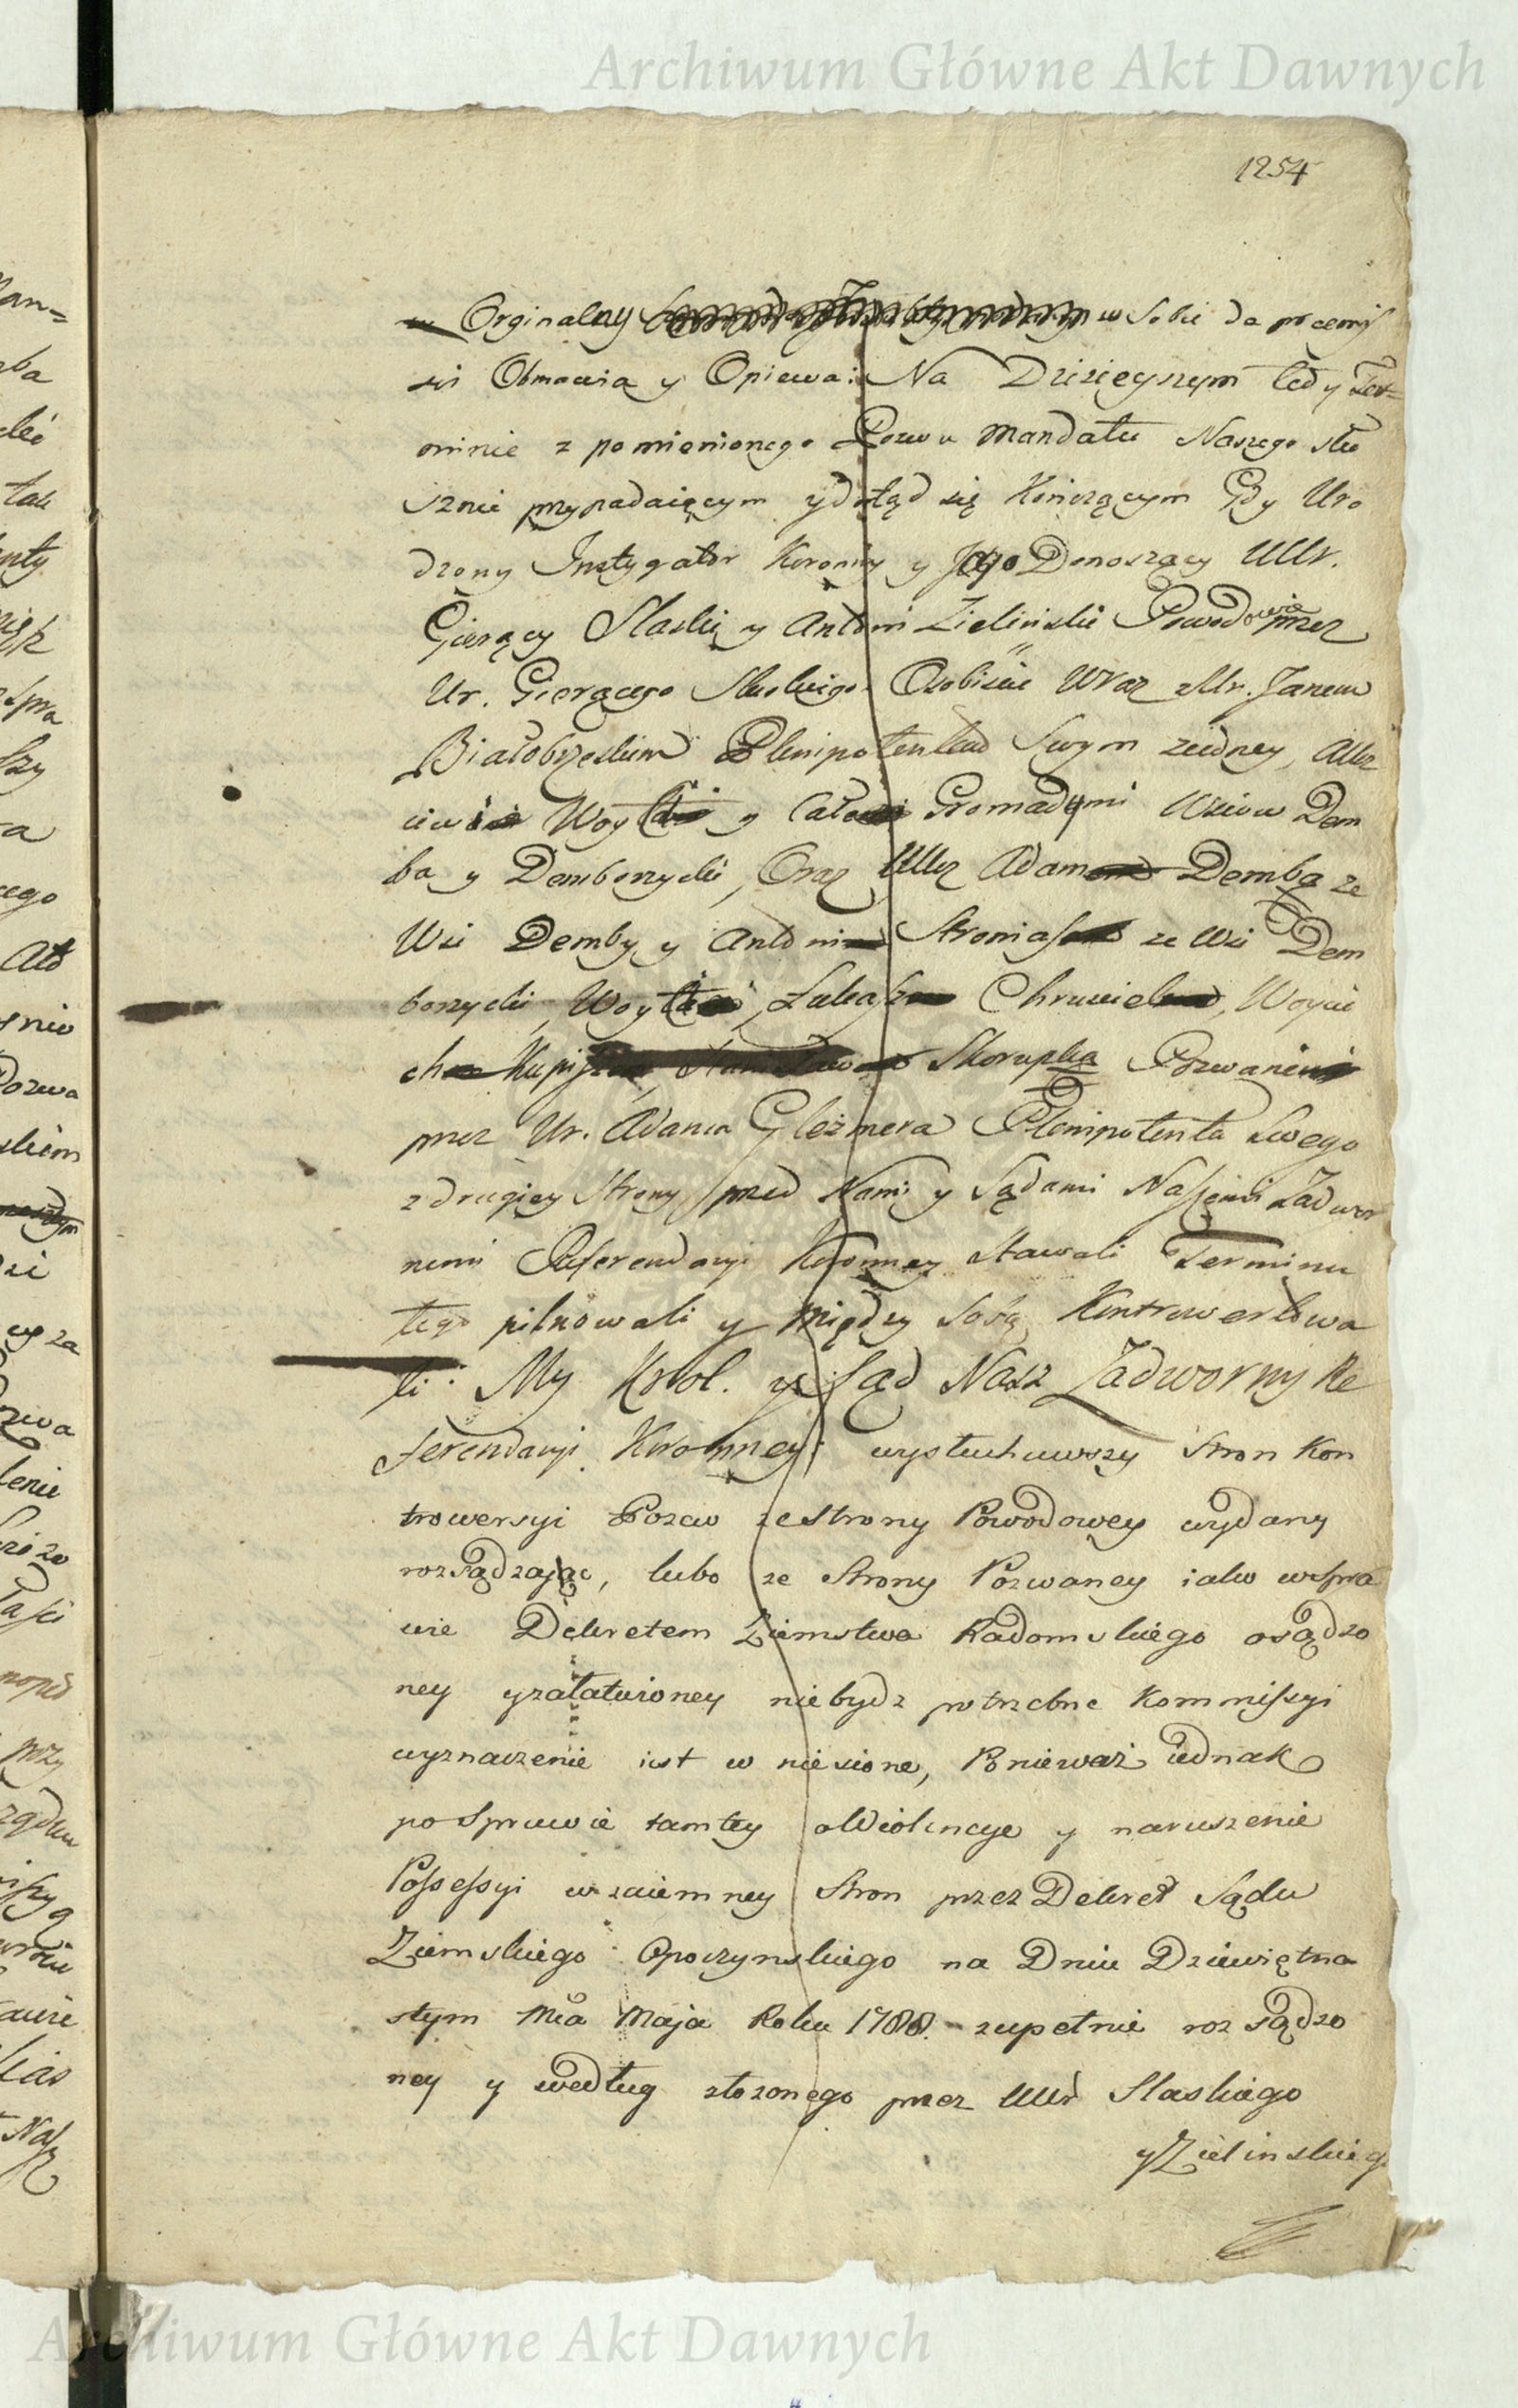 Archiwum Główne Akt Dawnych
1254
Orginalny w Sobie da przeniy
sis Obmawia y Opiewa: Na Dzisieyszym tedy Ter=
minie z pomienionego Pozwu Mandatu Naszego słu
sznie przypadaiącym y dotąd się Kończącym Gdy Uro
dzony Instygator Koronny y Jego Donoszący UUr.
Gierzący Slaski y Antoni Zieliński Powodowie przez
Ur. Gierzącego Slaskiego Osobiście Wraz z Ur. Janem
Białobrzeskim Plenipotentem Swym zeidney, a Ucz
ciwi Woyt y Cało Gromadami Wsiow Dem
ba y Demborzyczki, Oraz UUcz Adam Demba ze
Wsi Demby y Antoni Stronias ze Wsi Dem
borzyczki, Woyt, Łukasz Chrusciel, Woycie
ch Kupis, Skorupka Pozwani
przez Ur. Adama Gleżmera Plenipotenta Swego
z drugiey Strony przed Nami y Sądami Naszemi Zadwor
nemi Referendaryi Koronney Stawali Terminu
tego pilnowali y między Sobą Kontrowertowa
li: My Krol. y Sąd Nasz Zadworny Re
ferendaryi Koronney: wysłuchawszy Stron Kon
trowersyi Pozew ze Strony Powodowey wydany
rozsądzając, lubo ze Strony Pozwaney iako w Spra
wie Dekretem Ziemstwa Radomskiego osądzo
ney y załatwioney niebydz potrzebne Kommissyi
wyznaczenie iest w niesione, Ponieważ iednak
po Sprawie tamtey o Wiolencye y naruszenie
Possessyi wzaiemney Stron przez Dekret Sądu
Ziemskiego Opoczynskiego na Dniu Dziewiętna
stym Mca Maja Roku 1788. zupełnie rozsądzo
ney y według złożonego przez UUr Slaskiego
y Zielinskieg
Archiwum Główne Akt Dawnych